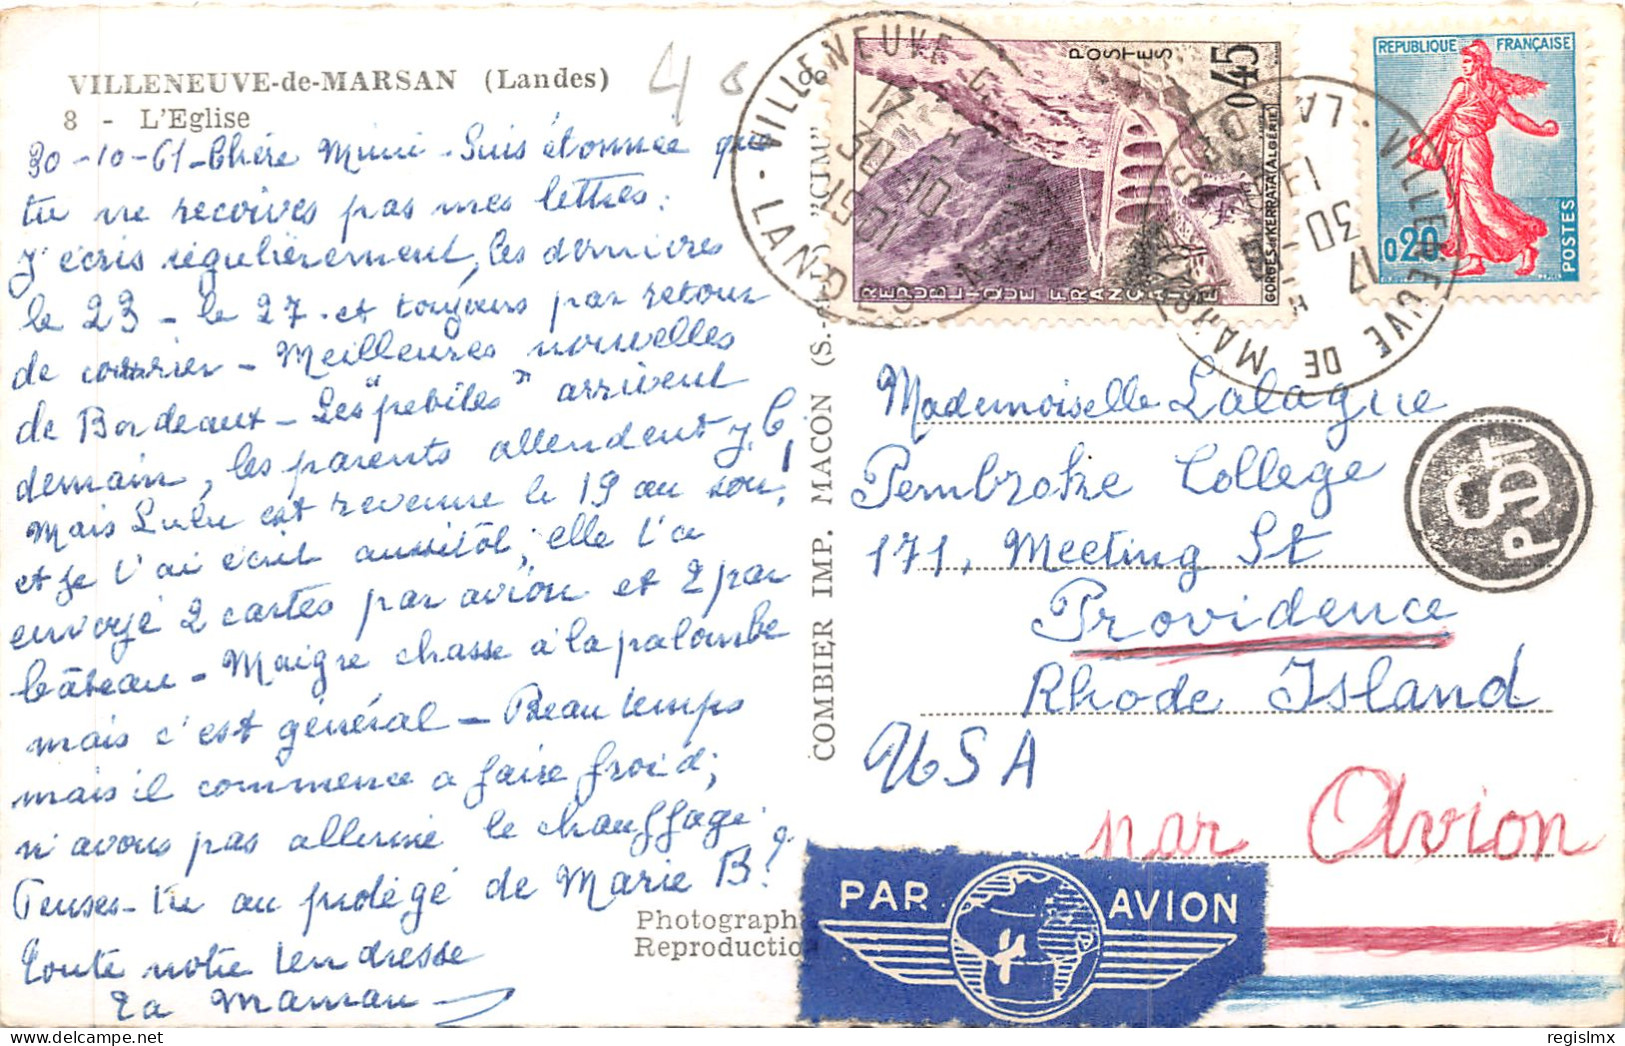 VILLENEUVE-de-MARSAN (Landes)
8 - L'Eglise
30-10-61-Chère Mimi - Suis étonnée que
tu ne recoives pas mes lettres:
J'écris régulièrement, les dernières
le 23 - le 27 - et toujours par retour
de courrier - Meilleures nouvelles
de Bordeaux - Les "petites" arrivent
demain, les parents attendent
Mais Lulu est revenue le 19 au
et je l'ai écrit aussitôt, elle t'a
envoyé 2 cartes par avion et 2 par
bâteau - Maigre chasse à la palombe
mais c'est général - Beau temps
mais il commence a faire froid;
n'avons pas allumé le chauffage.
Penses-tu au protégé de Marie B?
Toute notre tendresse
ta Maman
Photograph
Reproductio
COMBIER IMP. MACON (S.- "CIM"
POSTES
0,45
GORGES de KERRATA (ALGÉRIE)
REPUBLIQUE FRANÇAISE
VILLENEUVE DE MARSAN
LANDES
17 H
30-10
1961
REPUBLIQUE FRANÇAISE
0,20
POSTES
VILLENEUVE DE MARSAN
LANDES
17 H
30-10
Mademoiselle Lalague
Pembroke College
171, Meeting St
Providence
Rhode Island
USA
par Avion
PAR AVION
regislmx